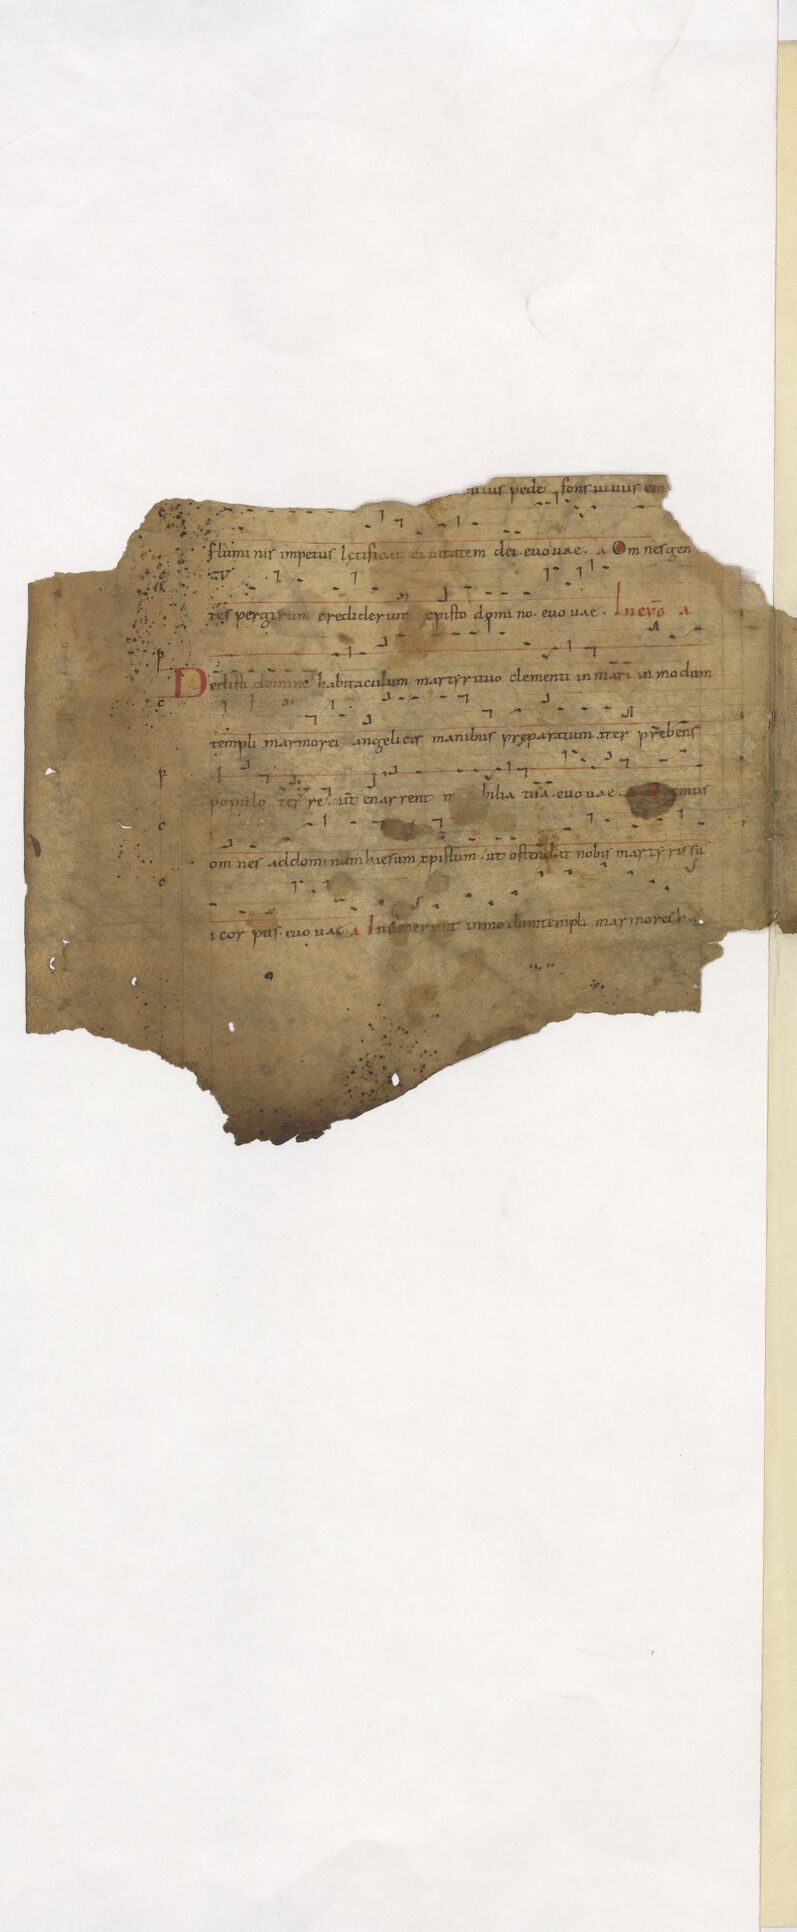 cuius pede fons uiuus em
fluminis impetus lętificat ciuitatem dei. euouae. a Omnes gen
tes per girum crediderunt xpisto domino. euouae. In euḡ a
Dedisti domine habitaculum martyri tuo clementi in mari in modum
templi marmorei angelicis manibus pręparatum iter prębens
populo terre. ut enarrent mirabilia tua. euouae. emus
omnes ad dominum hiesum xpistum. ut ostendat nobis martyris su
i corpus. euouae. a Inuenerunt in modum templi marmorei ha